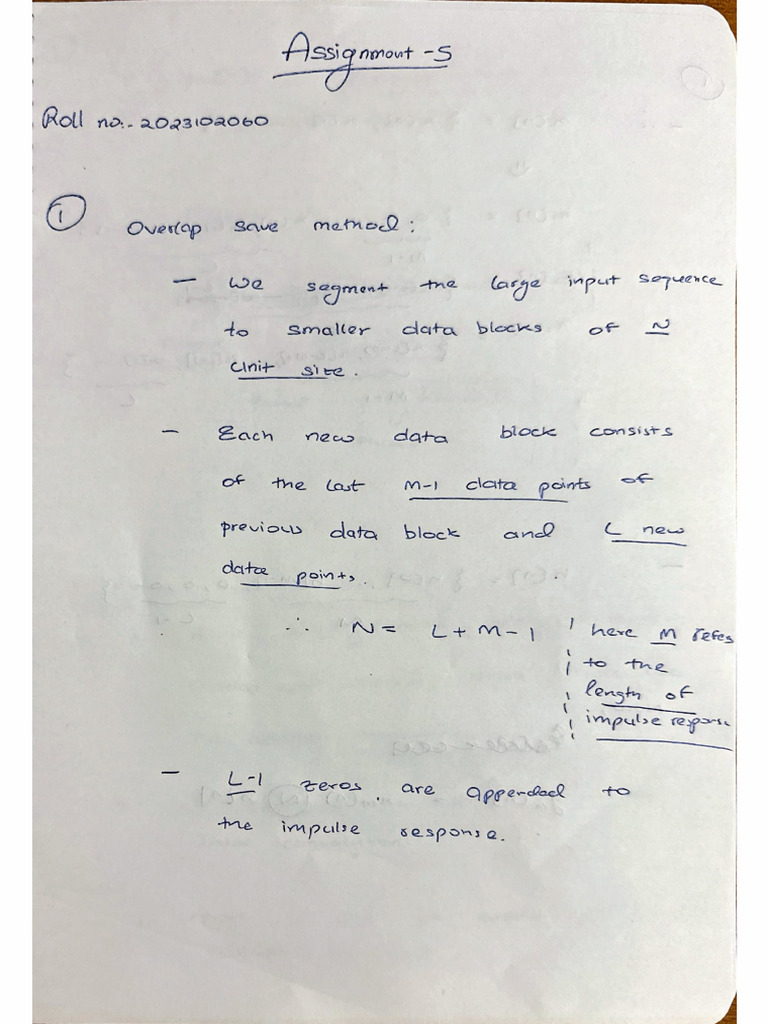 Assignment -5
Roll no.- 2023102060
① Overlap save method:
- We segment the large input sequence
to smaller data blocks of N
unit size.
- Each new data block consists
of the last M-1 data points of
previous data block and L new
data points.
∴ N = L+M-1
here M refes
to the
length of
impulse response
- L-1 zeros are appended to
the impulse response.